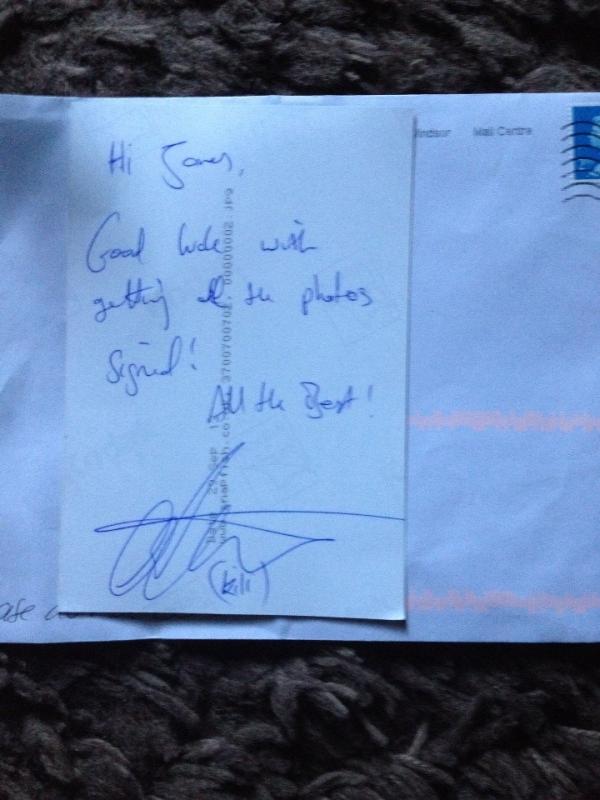 Hi James,
Good luck with
getting all the photos
signed!
All the Best!
(Kili)
Mail Centre